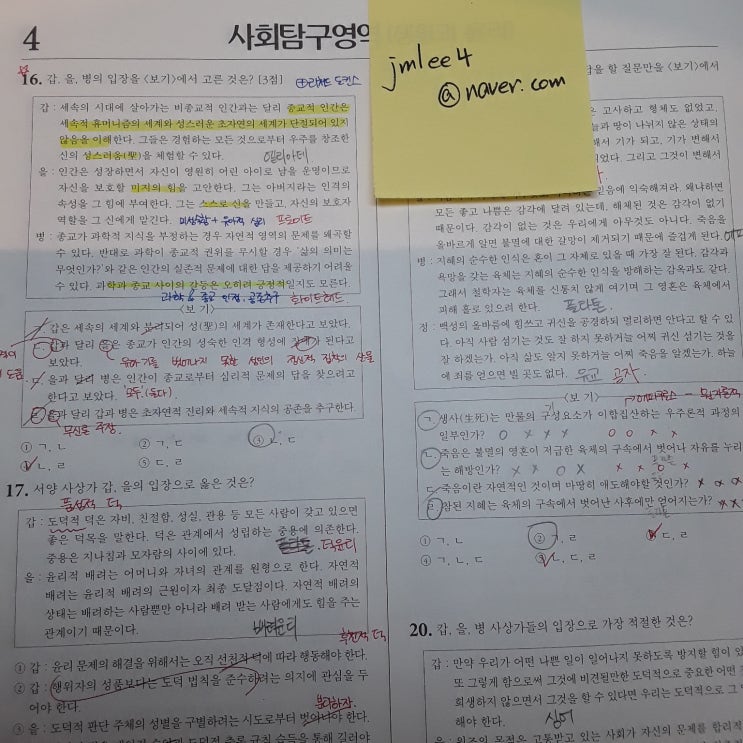 4
사회탐구영역
jmlee4
@naver.com
16. 갑, 을, 병의 입장을 <보기>에서 고른 것은? [3점]
갑 : 세속의 시대에 살아가는 비종교적 인간과는 달리 종교적 인간은
세속적 휴머니즘의 세계와 성스러운 초자연의 세계가 단절되어 있지
않음을 이해한다. 그들은 경험하는 모든 것으로부터 우주를 창조한
신의 성스러움(聖)을 체험할 수 있다.
엘리아데
을 : 인간은 성장하면서 자신이 영원히 어린 아이로 남을 운명이므로
자신을 보호할 미지의 힘을 고안한다. 그는 아버지라는 인격의
속성을 그 힘에 부여한다. 그는 스스로 신을 만들고, 자신의 보호자
역할을 그 신에게 맡긴다.
프로이트
병 : 종교가 과학적 지식을 부정하는 경우 자연적 영역의 문제를 왜곡할
수 있다. 반대로 과학이 종교적 권위를 무시할 경우 '삶의 의미는
무엇인가?'와 같은 인간의 실존적 문제에 대한 답을 제공하기 어려울
수 있다. 과학과 종교 사이의 갈등은 오히려 긍정적일지도 모른다.
과학 & 종교 인정, 공존추구 화이트헤드
<보 기>
ㄱ. 갑은 세속의 세계와 분리되어 성(聖)의 세계가 존재한다고 보았다.
ㄴ. 갑과 달리 을은 인간이 종교가 인간의 성숙한 인격 형성에 장애가 된다고
보았다.
ㄷ. 을과 달리 병은 인간이 종교로부터 심리적 문제의 답을 찾으려고
한다고 보았다.
ㄹ. 을과 달리 갑과 병은 초자연적 진리와 세속적 지식의 공존을 추구한다.
무신론 주장
① ㄱ, ㄴ
② ㄱ, ㄷ
③ ㄴ, ㄷ
④ ㄴ, ㄹ
⑤ ㄷ, ㄹ
17. 서양 사상가 갑, 을의 입장으로 옳은 것은?
갑 : 도덕적 덕은 자비, 친절함, 성실, 관용 등 모든 사람이 갖고 있으면
좋은 덕목을 말한다. 덕은 관계에서 성립하는 중용에 의존한다.
중용은 지나침과 모자람의 사이에 있다.
덕윤리
을 : 윤리적 배려는 어머니와 자녀의 관계를 원형으로 한다. 자연적
배려는 윤리적 배려의 근원이자 최종 도달점이다. 자연적 배려의
상태는 배려하는 사람뿐만 아니라 배려 받는 사람에게도 힘을 주는
관계이기 때문이다.
배려윤리
① 갑 : 윤리 문제의 해결을 위해서는 오직 선천적 덕에 따라 행동해야 한다.
② 갑 : 행위자의 성품보다는 도덕 법칙을 준수하려는 의지에 관심을 두
어야 한다.
③ 을 : 도덕적 판단 주체의 성별을 구별하려는 시도로부터 벗어나야 한다.
갑을 할 질문만을 <보기>에서
은 고사하고 형체도 없었고,
늘과 땅이 나뉘지 않은 상태의
해서 기가 되고, 기가 변해서
되었다. 그리고 그것이 변해서
믿음에 익숙해져라. 왜냐하면
모든 좋고 나쁨은 감각에 달려 있는데, 해체된 것은 감각이 없기
때문이다. 감각이 없는 것은 우리에게 아무것도 아니다. 죽음을
올바르게 알면 불멸에 대한 갈망이 제거되기 때문에 즐겁게 된다.
병 : 지혜의 순수한 인식은 혼이 그 자체로 있을 때 가장 잘 된다. 감각과
욕망을 갖는 육체는 지혜의 순수한 인식을 방해하는 감옥과도 같다.
그래서 철학자는 육체를 신통치 않게 여기며 그 영혼은 육체에서
피해 홀로 있으려 한다.
플라톤
정 : 백성의 올바름에 힘쓰고 귀신을 공경하되 멀리하면 안다고 할 수 있
다. 아직 사람 섬기는 것도 잘 하지 못하거늘 어찌 귀신 섬기는 것을
잘 하겠는가. 아직 삶도 알지 못하거늘 어찌 죽음을 알겠는가. 하늘
에 죄를 얻으면 빌 곳도 없다.
유교 공자
<보 기>
ㄱ. 생사(生死)는 만물의 구성요소가 이합집산하는 우주론적 과정의
일부인가?
ㄴ. 죽음은 불멸의 영혼이 저급한 육체의 구속에서 벗어나 자유를 누리
는 해방인가?
ㄷ. 죽음이란 자연적인 것이며 마땅히 애도해야할 것인가?
ㄹ. 참된 지혜는 육체의 구속에서 벗어난 사후에만 얻어지는가?
① ㄱ, ㄴ
② ㄱ, ㄹ
③ ㄷ, ㄹ
④ ㄱ, ㄴ, ㄷ
⑤ ㄴ, ㄷ, ㄹ
20. 갑, 을, 병 사상가들의 입장으로 가장 적절한 것은?
갑 : 만약 우리가 어떤 나쁜 일이 일어나지 못하도록 방지할 힘이 있
또 그렇게 함으로써 그것에 비견될만한 도덕적으로 중요한 어떤
희생하지 않으면서 그것을 할 수 있다면 우리는 도덕적으로 그
해야 한다.
싱어
을 : 원조의 목적은 고통받고 있는 사회가 자신의 문제를 합리적